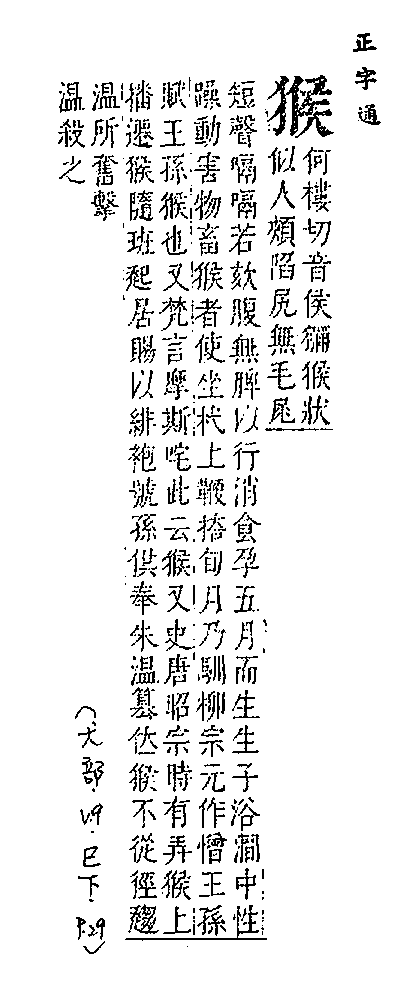 正字通
猴
何樓切音侯獼猴狀
似人頰陷尻無毛尾
短聲嗝嗝若欬腹無脾以行消食孕五月而生生子浴澗中性
躁動害物畜猴者使坐杙上鞭掊旬月乃馴柳宗元作憎王孫
賦王孫猴也又梵言摩斯咤此云猴又史唐昭宗時有弄猴上
播遷猴隨班起居賜以緋袍號孫供奉朱溫簒位猴不從徑趨
溫所奮擊
溫殺之
(犬部.V9.巳下.P.29)